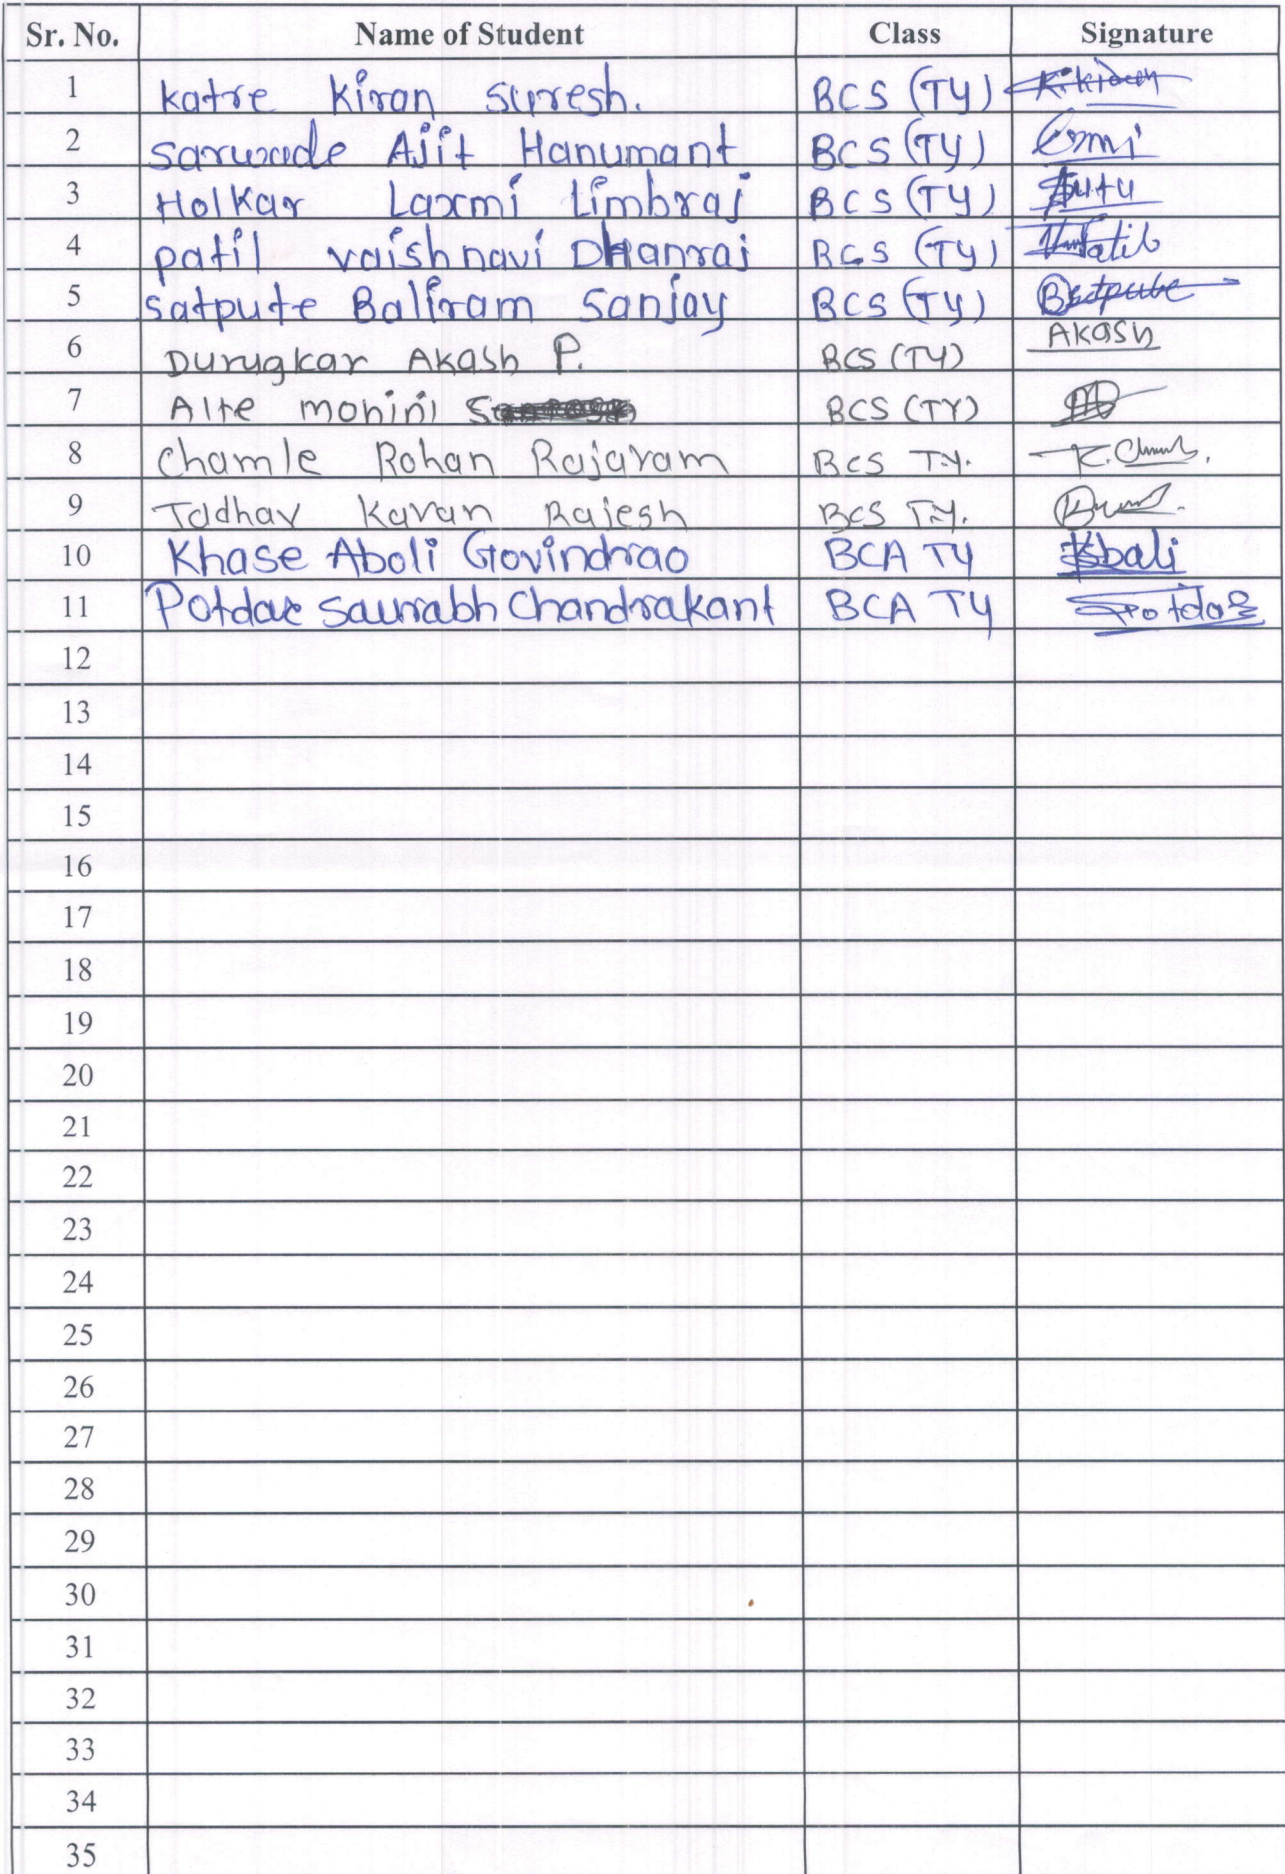 Sr. No. Name of Student Class Signature
1 katre kiran suresh. BCS (TY) K.kiran
2 sarwade Ajit Hanumant BCS (TY)
3 Holkar Laxmi Limbraj BCS (TY)
4 patil vaishnavi Dhanraj BCS (TY) Patil
5 satpute Baliram Sanjay BCS (TY) Bsatpute
6 Durugkar Akash P. BCS (TY) Akash
7 Alte mohini BCS (TY)
8 Chamle Rohan Rajaram BCS T.Y.
9 Jadhav Karan Rajesh BCS T.Y.
10 Khase Aboli Govindrao BCA TY
11 Potdar Saurabh Chandrakant BCA TY Potdar
12
13
14
15
16
17
18
19
20
21
22
23
24
25
26
27
28
29
30
31
32
33
34
35